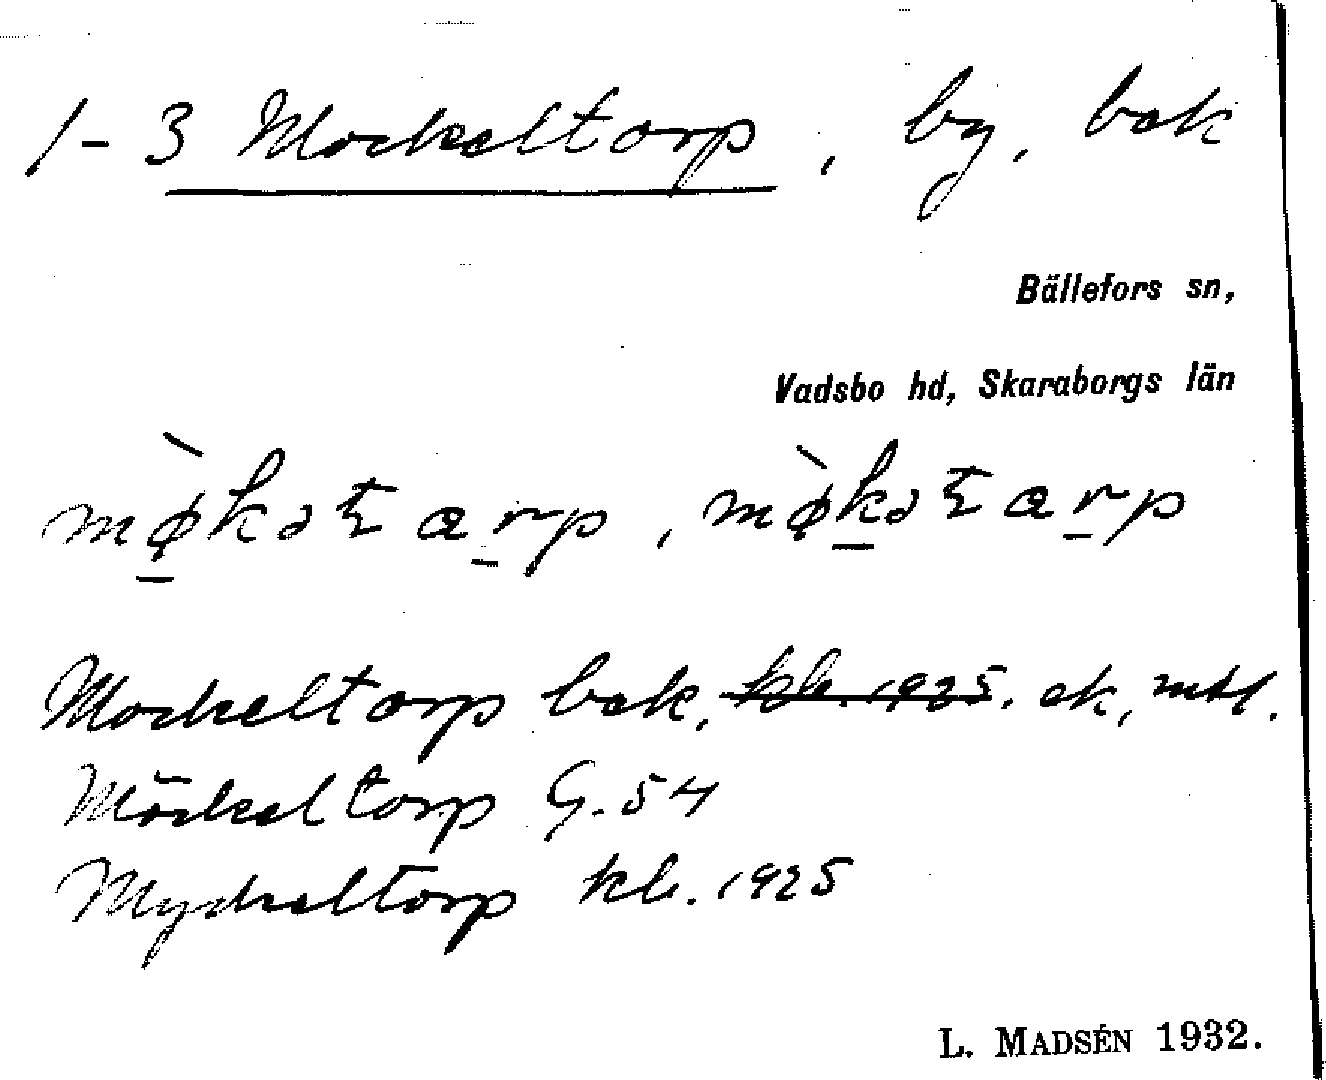 1-3 Mockeltorp, by, bek
Bällefors sn,
Vadsbo hd, Skaraborgs län
Mockeltorp bek, kb. 1925. ek, mtl.
Möckeltorp G. 54
Myckeltorp kb. 1925
L. MADSÉN 1932.